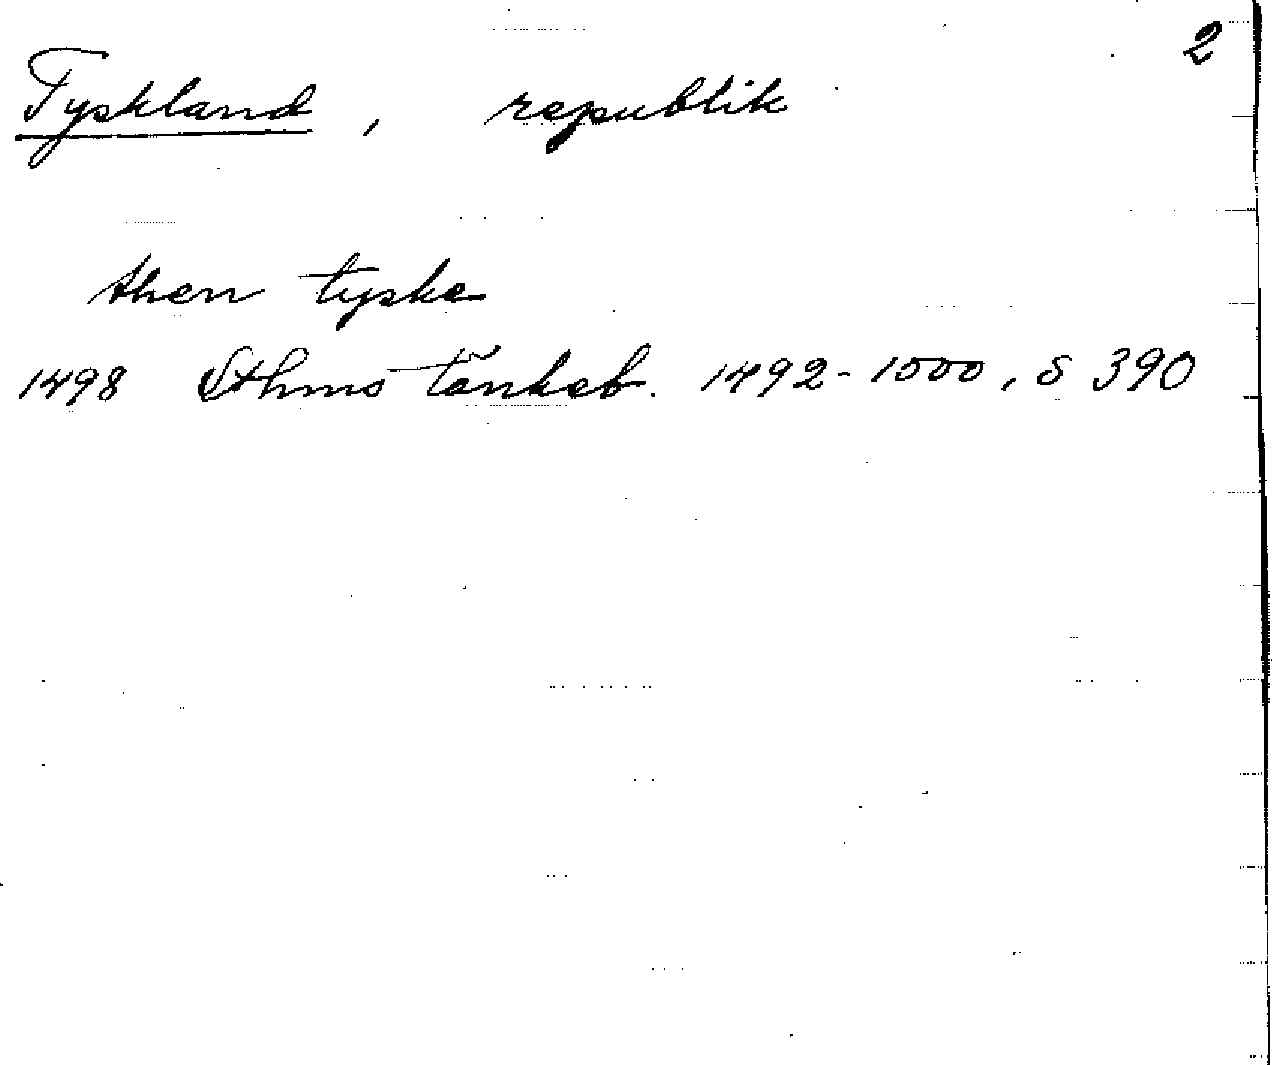 2
Tyskland, republik
then tyske
1498 Sthms tänkeb. 1492-1500, s 390